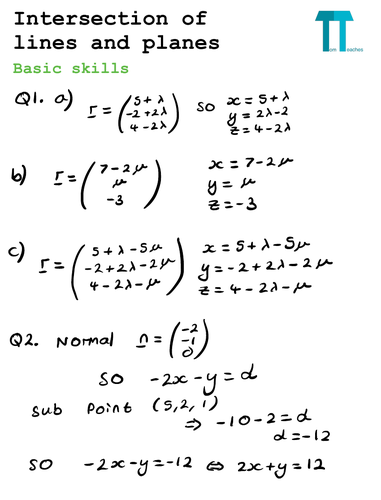 Intersection of
lines and planes
Tom Teaches
Basic skills
Q1. a) r = (5+λ, -2+2λ, 4-2λ) so x = 5+λ
y = 2λ-2
z = 4-2λ
b) r = (7-2μ, μ, -3) x = 7-2μ
y = μ
z = -3
c) r = (5+λ-5μ, -2+2λ-2μ, 4-2λ-μ) x = 5+λ-5μ
y = -2+2λ-2μ
z = 4-2λ-μ
Q2. Normal n = (-2, -1, 0)
so -2x-y=d
sub point (5,2,1)
⇒ -10-2=d
d=-12
so -2x-y=-12 ⇔ 2x+y=12